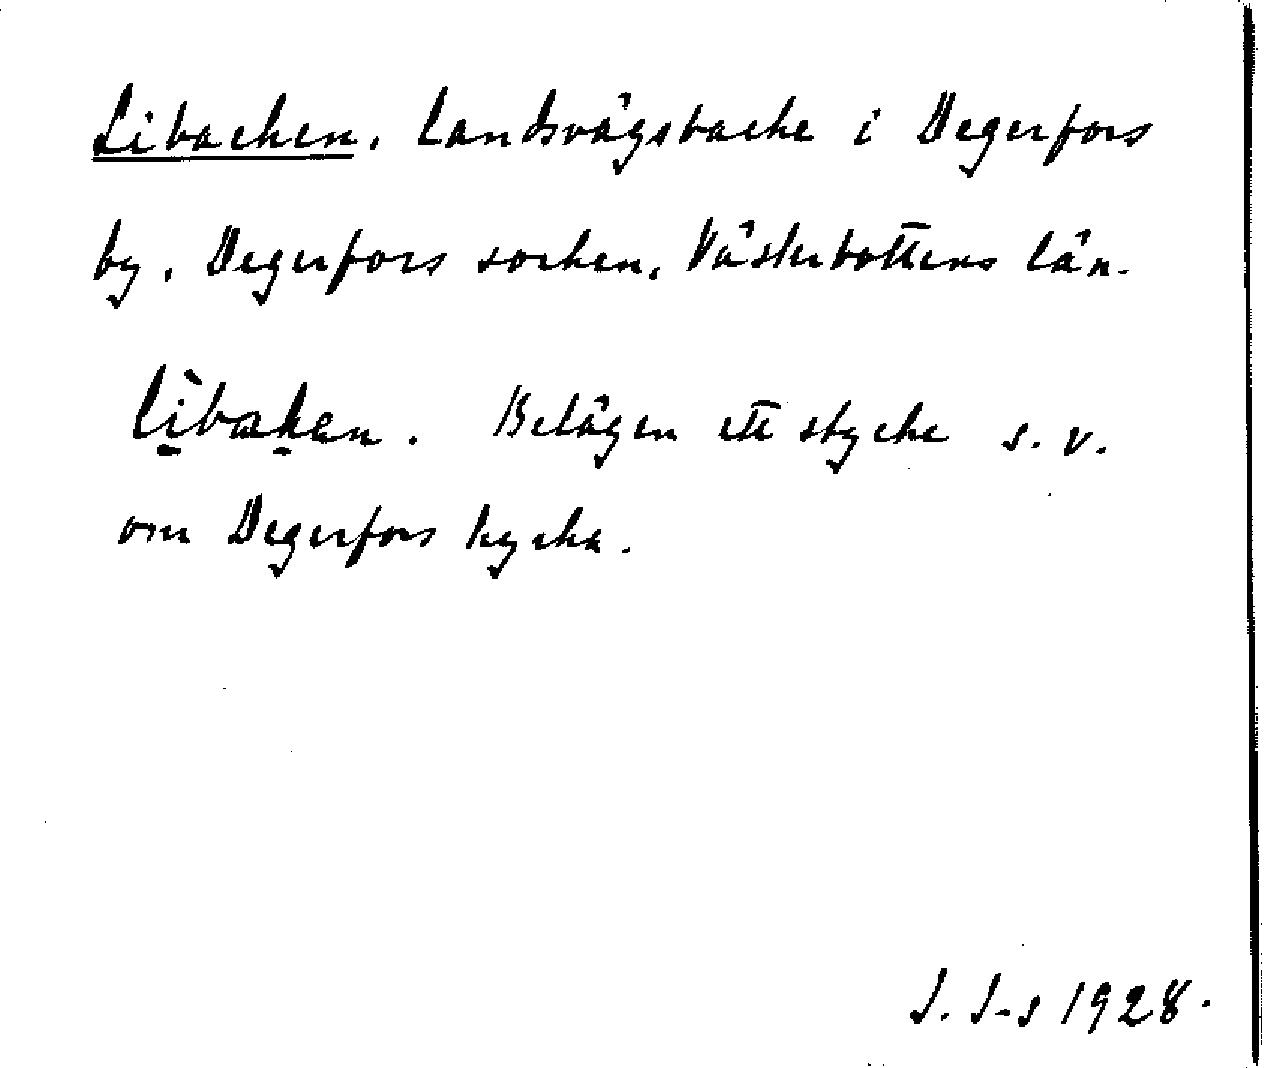 Libacken, landsvägsbacke i Degerfors
by, Degerfors socken, Västerbottens län.
lìbaken. Belägen ett stycke s. v.
om Degerfors kyrka.
J. J-s 1928.